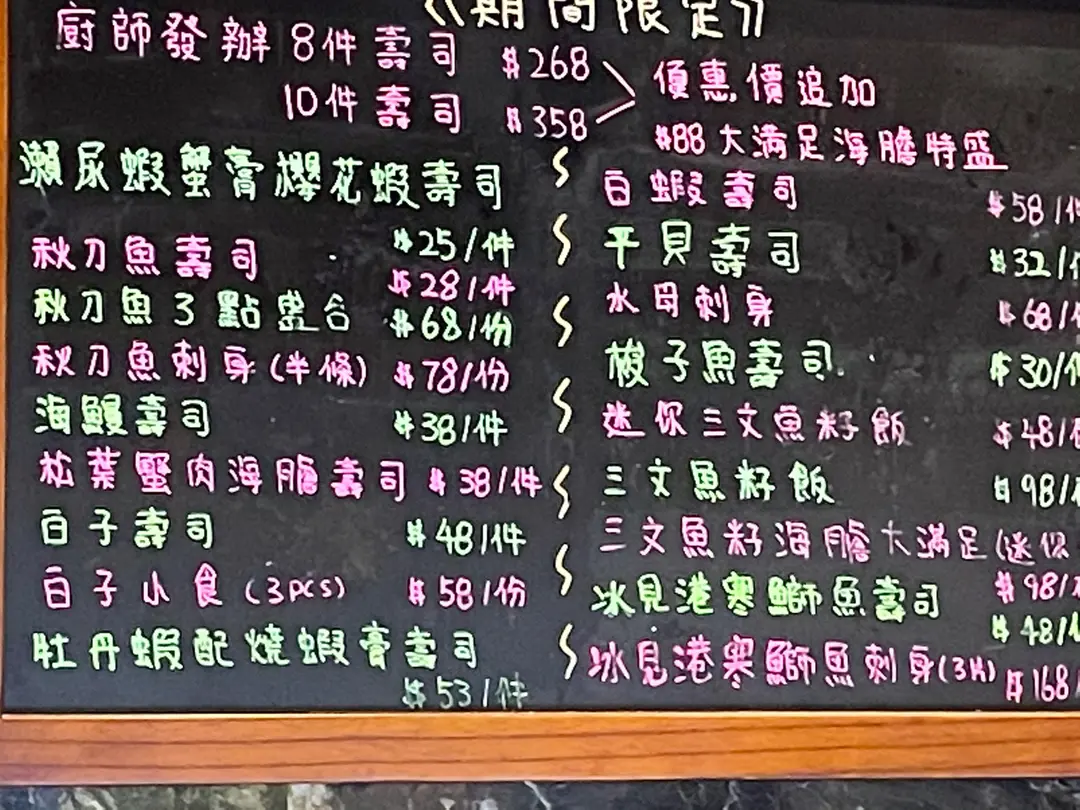 《期間限定》
廚師發辦8件壽司 $268
10件壽司 $358
優惠價追加
$88大滿足海膽特盛
瀨尿蝦蟹膏櫻花蝦壽司
$25/件
秋刀魚壽司 $28/件
秋刀魚3點盛合 $68/份
秋刀魚刺身(半條) $78/份
海鰻壽司 $38/件
松葉蟹肉海膽壽司 $38/件
白子壽司 $48/件
白子小食(3pcs) $58/份
牡丹蝦配燒蝦膏壽司
$53/件
白蝦壽司 $58/件
平貝壽司 $32/
水母刺身 $68/
梭子魚壽司 $30/
迷你三文魚籽飯 $48/
三文魚籽飯 $98/
三文魚籽海膽大滿足(迷你
$98/
冰見港寒鰤魚壽司
$48/
冰見港寒鰤魚刺身(3片) $168/